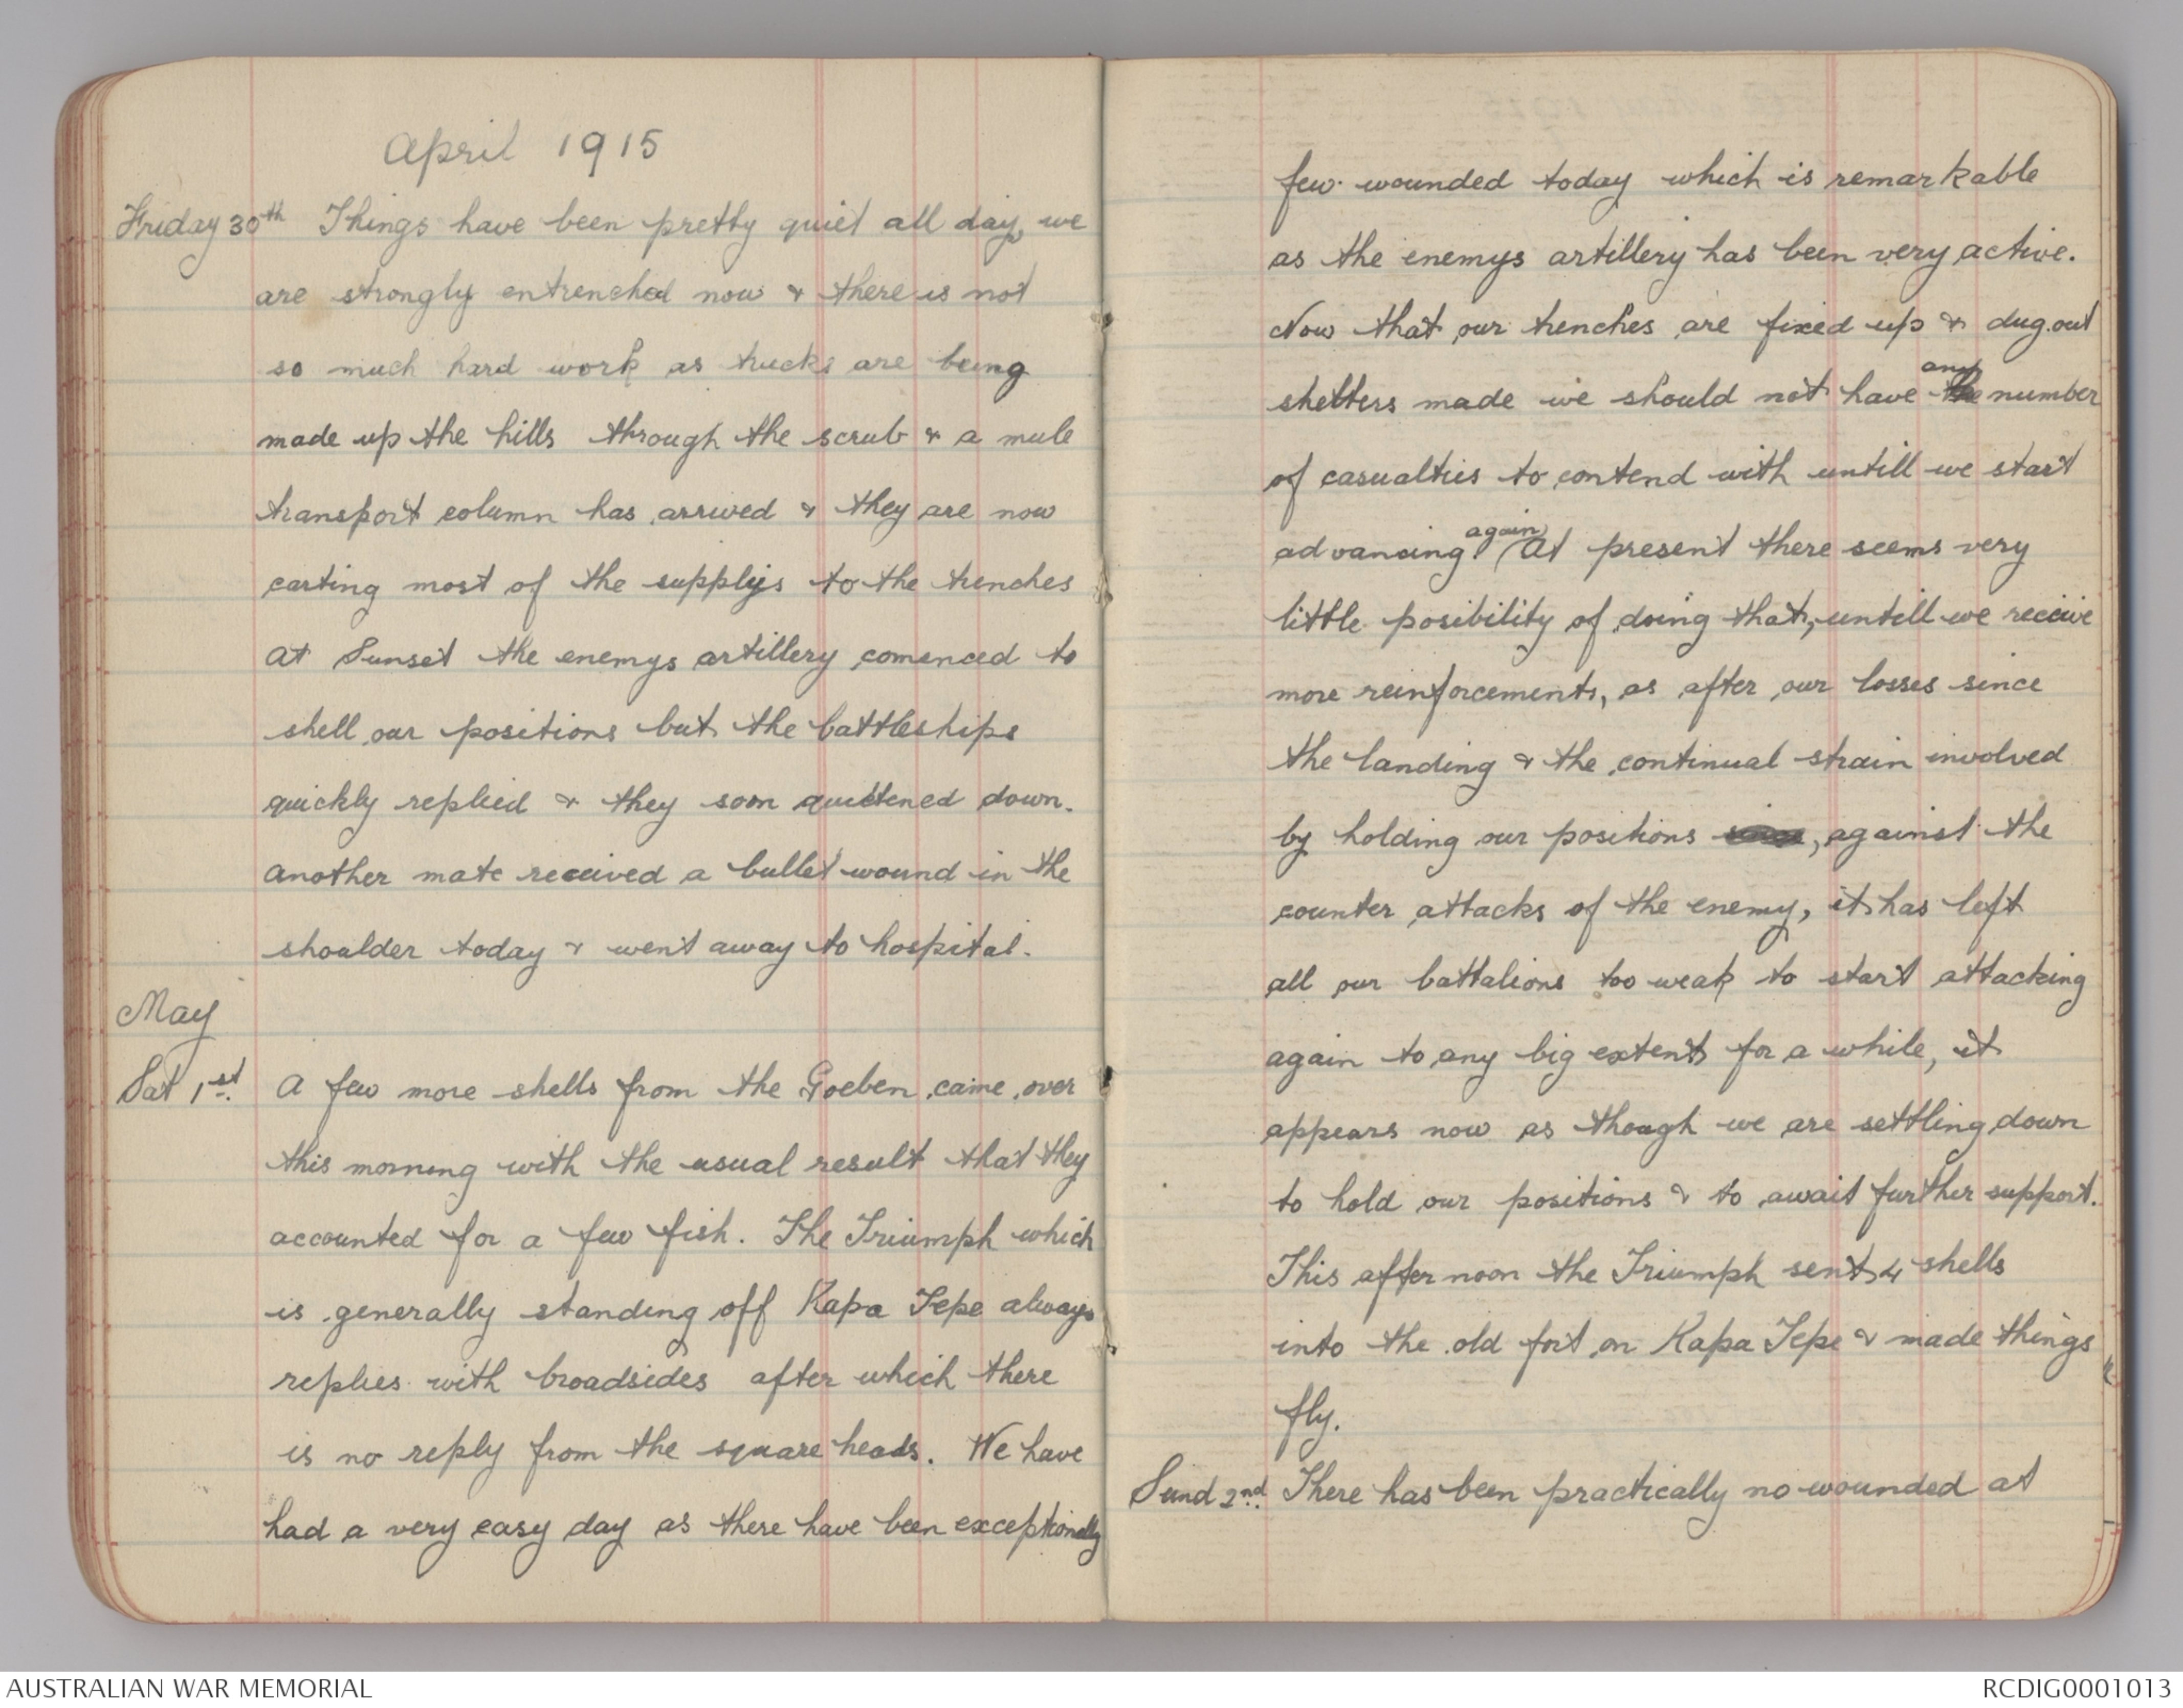 April 1915
Friday 30th Things have been pretty quiet all day, we
are strongly entrenched now & there is not
so much hard work as tracks are being
made up the hills through the scrub & a mule
transport column has arrived & they are now
carting most of the supplys to the trenches
At Sunset the enemys artillery comenced to
shell our positions but the battleships
quickly replied & they soon quietened down.
Another mate received a bullet wound in the
shoulder today & went away to hospital.
May
Sat 1st. A few more shells from the Goeben came over
this morning with the usual result that they
accounted for a few fish. The Triumph which
is generally standing off Kapa Tepe always
replies with broadsides after which there
is no reply from the square heads. We have
had a very easy day as there have been exceptionally
few wounded today which is remarkable
as the enemys artillery has been very active.
Now that our trenches are fixed up & dug.out
any
shelters made we should not have the number
of casualties to contend with untill we start
again
advancing. At present there seems very
little posibility of doing that, untill we receive
more reinforcements, as after our losses since
the landing & the continual strain involved
by holding our positions , against the
counter attacks of the enemy, it has left
all our battalions too weak to start attacking
again to any big extent for a while, it
appears now as though we are settling down
to hold our positions & to await further support.
This afternoon the Triumph sent 4 shells
into the old fort on Kapa Tepe & made things
fly.
Sund 2nd. There has been practically no wounded at
AUSTRALIAN WAR MEMORIAL
RCDIG0001013